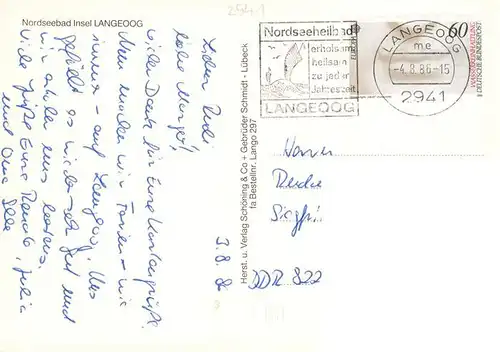 2941
Nordseebad Insel LANGEOOG
Nordseeheilbad
erholsam
heilsam
zu jeder
Jahreszeit
LANGEOOG
LANGEOOG
mc
-4.8.86-15
2941
60
DEUTSCHE BUNDESPOST
Herst. u. Verlag Schöning & Co + Gebrüder Schmidt - Lübeck
fa Bestellnr. Lango 297
3.8.86
Lieber Rudi
liebe Margot!
vielen Dank für Eure Kartengrüße.
Nun machen wir Ferien - wie
immer auf Langeoog. Uns
gefällt es wieder sehr gut und
wir erholen uns bestens.
Viele Grüße Eure Renate, Julia
und Oma Elli
Herrn
DDR 822